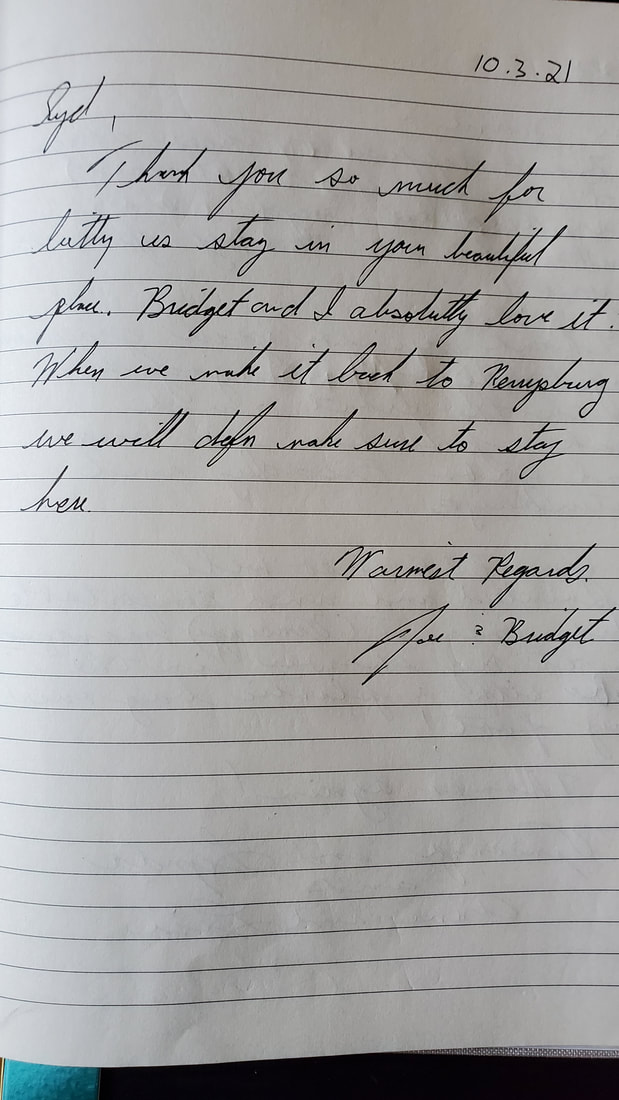 10.3.21
Syd,
Thank you so much for
letting us stay in your beautiful
place. Bridget and I absolutely love it.
When we make it back to Perrysburg
we will defn make sure to stay
here.
Warmest Regards.
Joe & Bridget